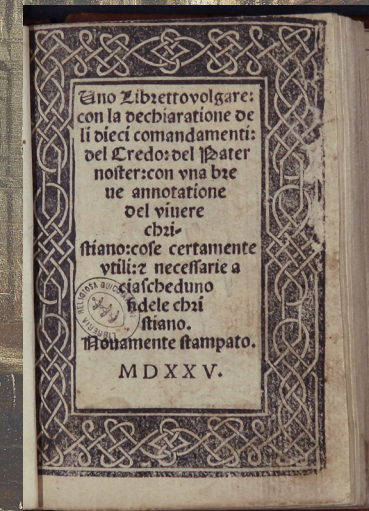 Uno Libretto volgare:
con la dechiaratione de
li dieci comandamenti:
del Credo: del Pater
noster: con vna bre
ue annotatione
del viuere
chri-
stiano: cose certamente
vtili: ⁊ necessarie a
ciascheduno
fidele chri
stiano.
Nouamente stampato.
MDXXV.
LIBRERIA RELIGIOSA